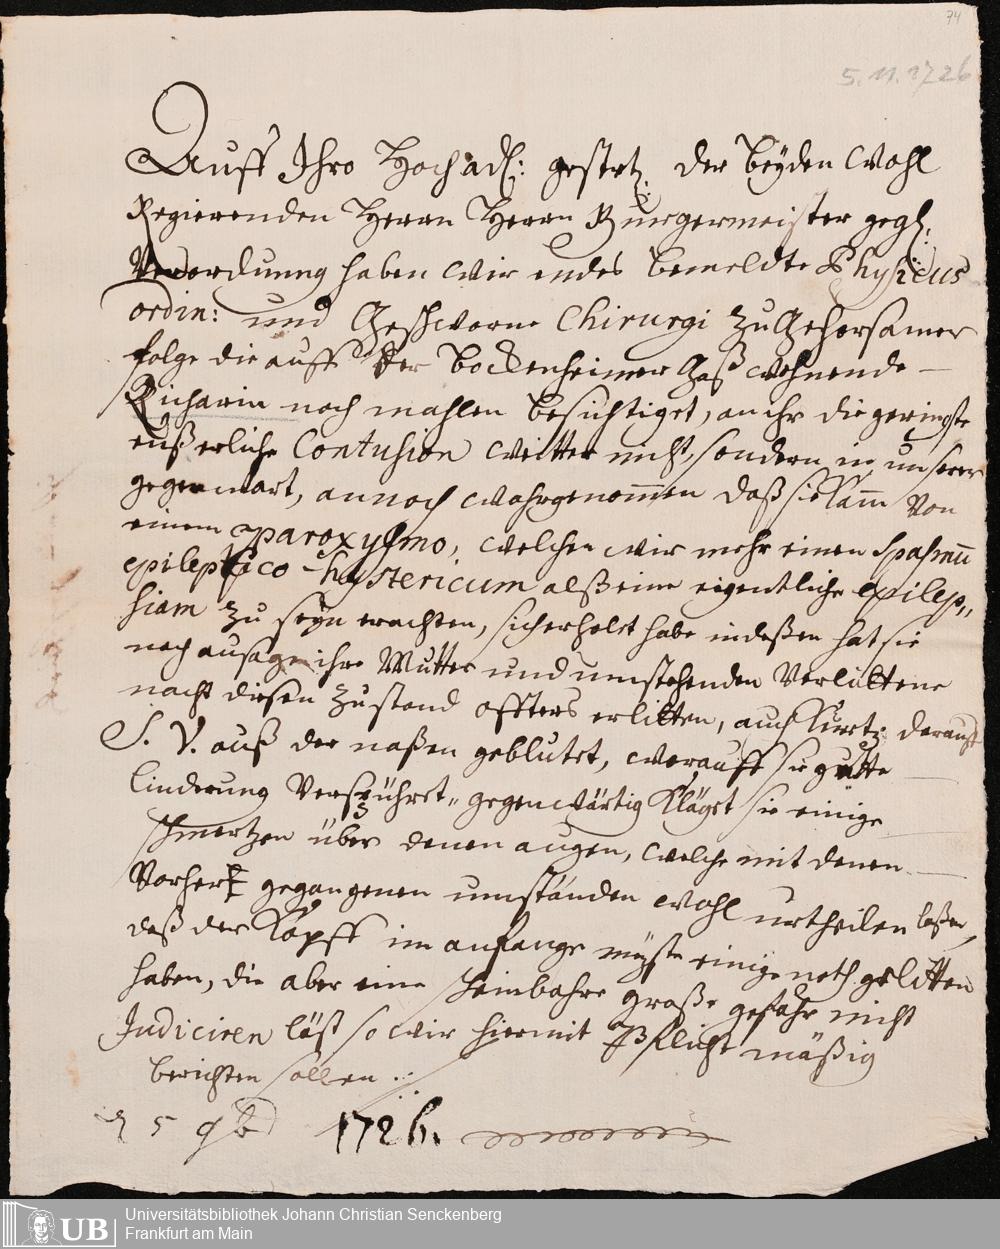 74
5.11.1726
Auff Ihro Hochadl: gestrl. der beyden Wohl
Regierenden Herrn Herrn Burgermeister gegl.
Verordnung haben wir endes bemeldte Physicus
ordin: und Geschworne Chirurgi zu Gehorsamer
folge die auff der Bockenheimer Gaß wohnende
Richarin noch mahlen besichtiget, an ihr die geringste
eußerliche Contusion weitter nicht, sondern in unserer
gegenwart, annoch wahrgenommen daß sie Kam von
einem paroxysmo, welchen wir mehr einen Spasmum
epileptico-hystericum alß eine eigentliche epilep„
siam zu seyn erachten, sich erholet habe indeßen hat sie
nach ausage ihre Mutter und umstehenden verlittene
nacht diesen zustand offters erlitten, auch Kurtz darauff
S. V. auß der naßen geblutet, worauff sie gutte
linderung Verspühret„ gegenwärtig Klaget sie einige
schmertzen über denen augen, welche mit denen
Vorher gegangenen umständen wohl urtheilen laßen,
daß der Kopff im anfange müste einige noth gelitten
haben, die aber eine scheinbahre große gefahr nicht
Judiciren läst so wir hiermit Pflicht mäßig
berichten sollen.
d 5 9b 1726.
UB
Universitätsbibliothek Johann Christian Senckenberg
Frankfurt am Main